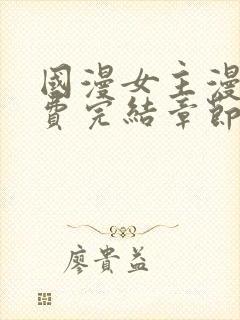 國漫女主漫
費完結章節
廖貴益